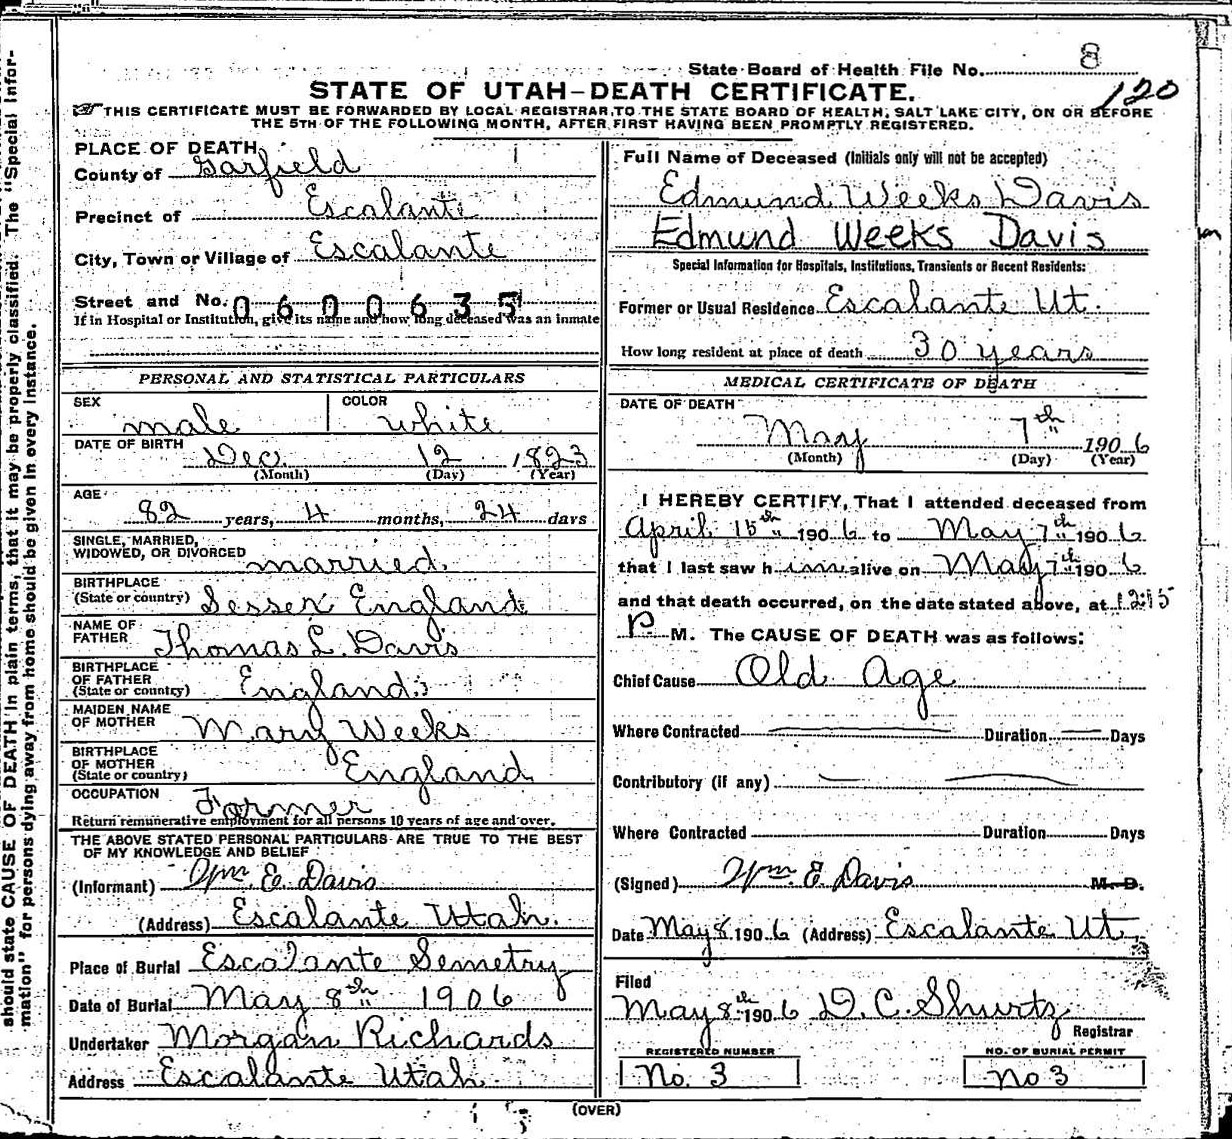 State Board of Health File No. 8
120
STATE OF UTAH-DEATH CERTIFICATE.
THIS CERTIFICATE MUST BE FORWARDED BY LOCAL REGISTRAR, TO THE STATE BOARD OF HEALTH, SALT LAKE CITY, ON OR BEFORE
THE 5TH OF THE FOLLOWING MONTH, AFTER FIRST HAVING BEEN PROMPTLY REGISTERED.
PLACE OF DEATH
County of Garfield
Precinct of Escalante
City, Town or Village of Escalante
Street and No. 0600635
If in Hospital or Institution, give its name and how long deceased was an inmate
PERSONAL AND STATISTICAL PARTICULARS
SEX male COLOR white
DATE OF BIRTH Dec. 12 1823
(Month) (Day) (Year)
AGE 82 years, 4 months, 24 days
SINGLE, MARRIED,
WIDOWED, OR DIVORCED married.
BIRTHPLACE
(State or country) Sessex England
NAME OF
FATHER Thomas L. Davis
BIRTHPLACE
OF FATHER
(State or country) England.
MAIDEN NAME
OF MOTHER Mary Weeks
BIRTHPLACE
OF MOTHER
(State or country) England
OCCUPATION Former
Return remunerative employment for all persons 10 years of age and over.
THE ABOVE STATED PERSONAL PARTICULARS ARE TRUE TO THE BEST
OF MY KNOWLEDGE AND BELIEF
(Informant) Wm. E. Davis
(Address) Escalante Utah.
Place of Burial Escalante Semetry
Date of Burial May 8th 1906
Undertaker Morgan Richards
Address Escalante Utah.
Full Name of Deceased (Initials only will not be accepted)
Edmund Weeks Davis
Edmund Weeks Davis
Special Information for Hospitals, Institutions, Transients or Recent Residents:
Former or Usual Residence Escalante Ut.
How long resident at place of death 30 years
MEDICAL CERTIFICATE OF DEATH
DATE OF DEATH
May 7th 1906
(Month) (Day) (Year)
I HEREBY CERTIFY, That I attended deceased from
April 15th 1906 to May 7th 1906
that I last saw him alive on May 7th 1906
and that death occurred, on the date stated above, at 12:15
P. M. The CAUSE OF DEATH was as follows:
Chief Cause Old Age
Where Contracted Duration Days
Contributory (if any)
Where Contracted Duration Days
(Signed) Wm. E. Davis M. D.
Date May 8 1906 (Address) Escalante Ut.
Filed
May 8th 1906 D. C. Shurtz
Registrar
REGISTERED NUMBER
No. 3
NO. OF BURIAL PERMIT
No 3
(OVER)
should state CAUSE OF DEATH in plain terms, that it may be properly classified. The "Special Infor-
mation" for persons dying away from home should be given in every instance.